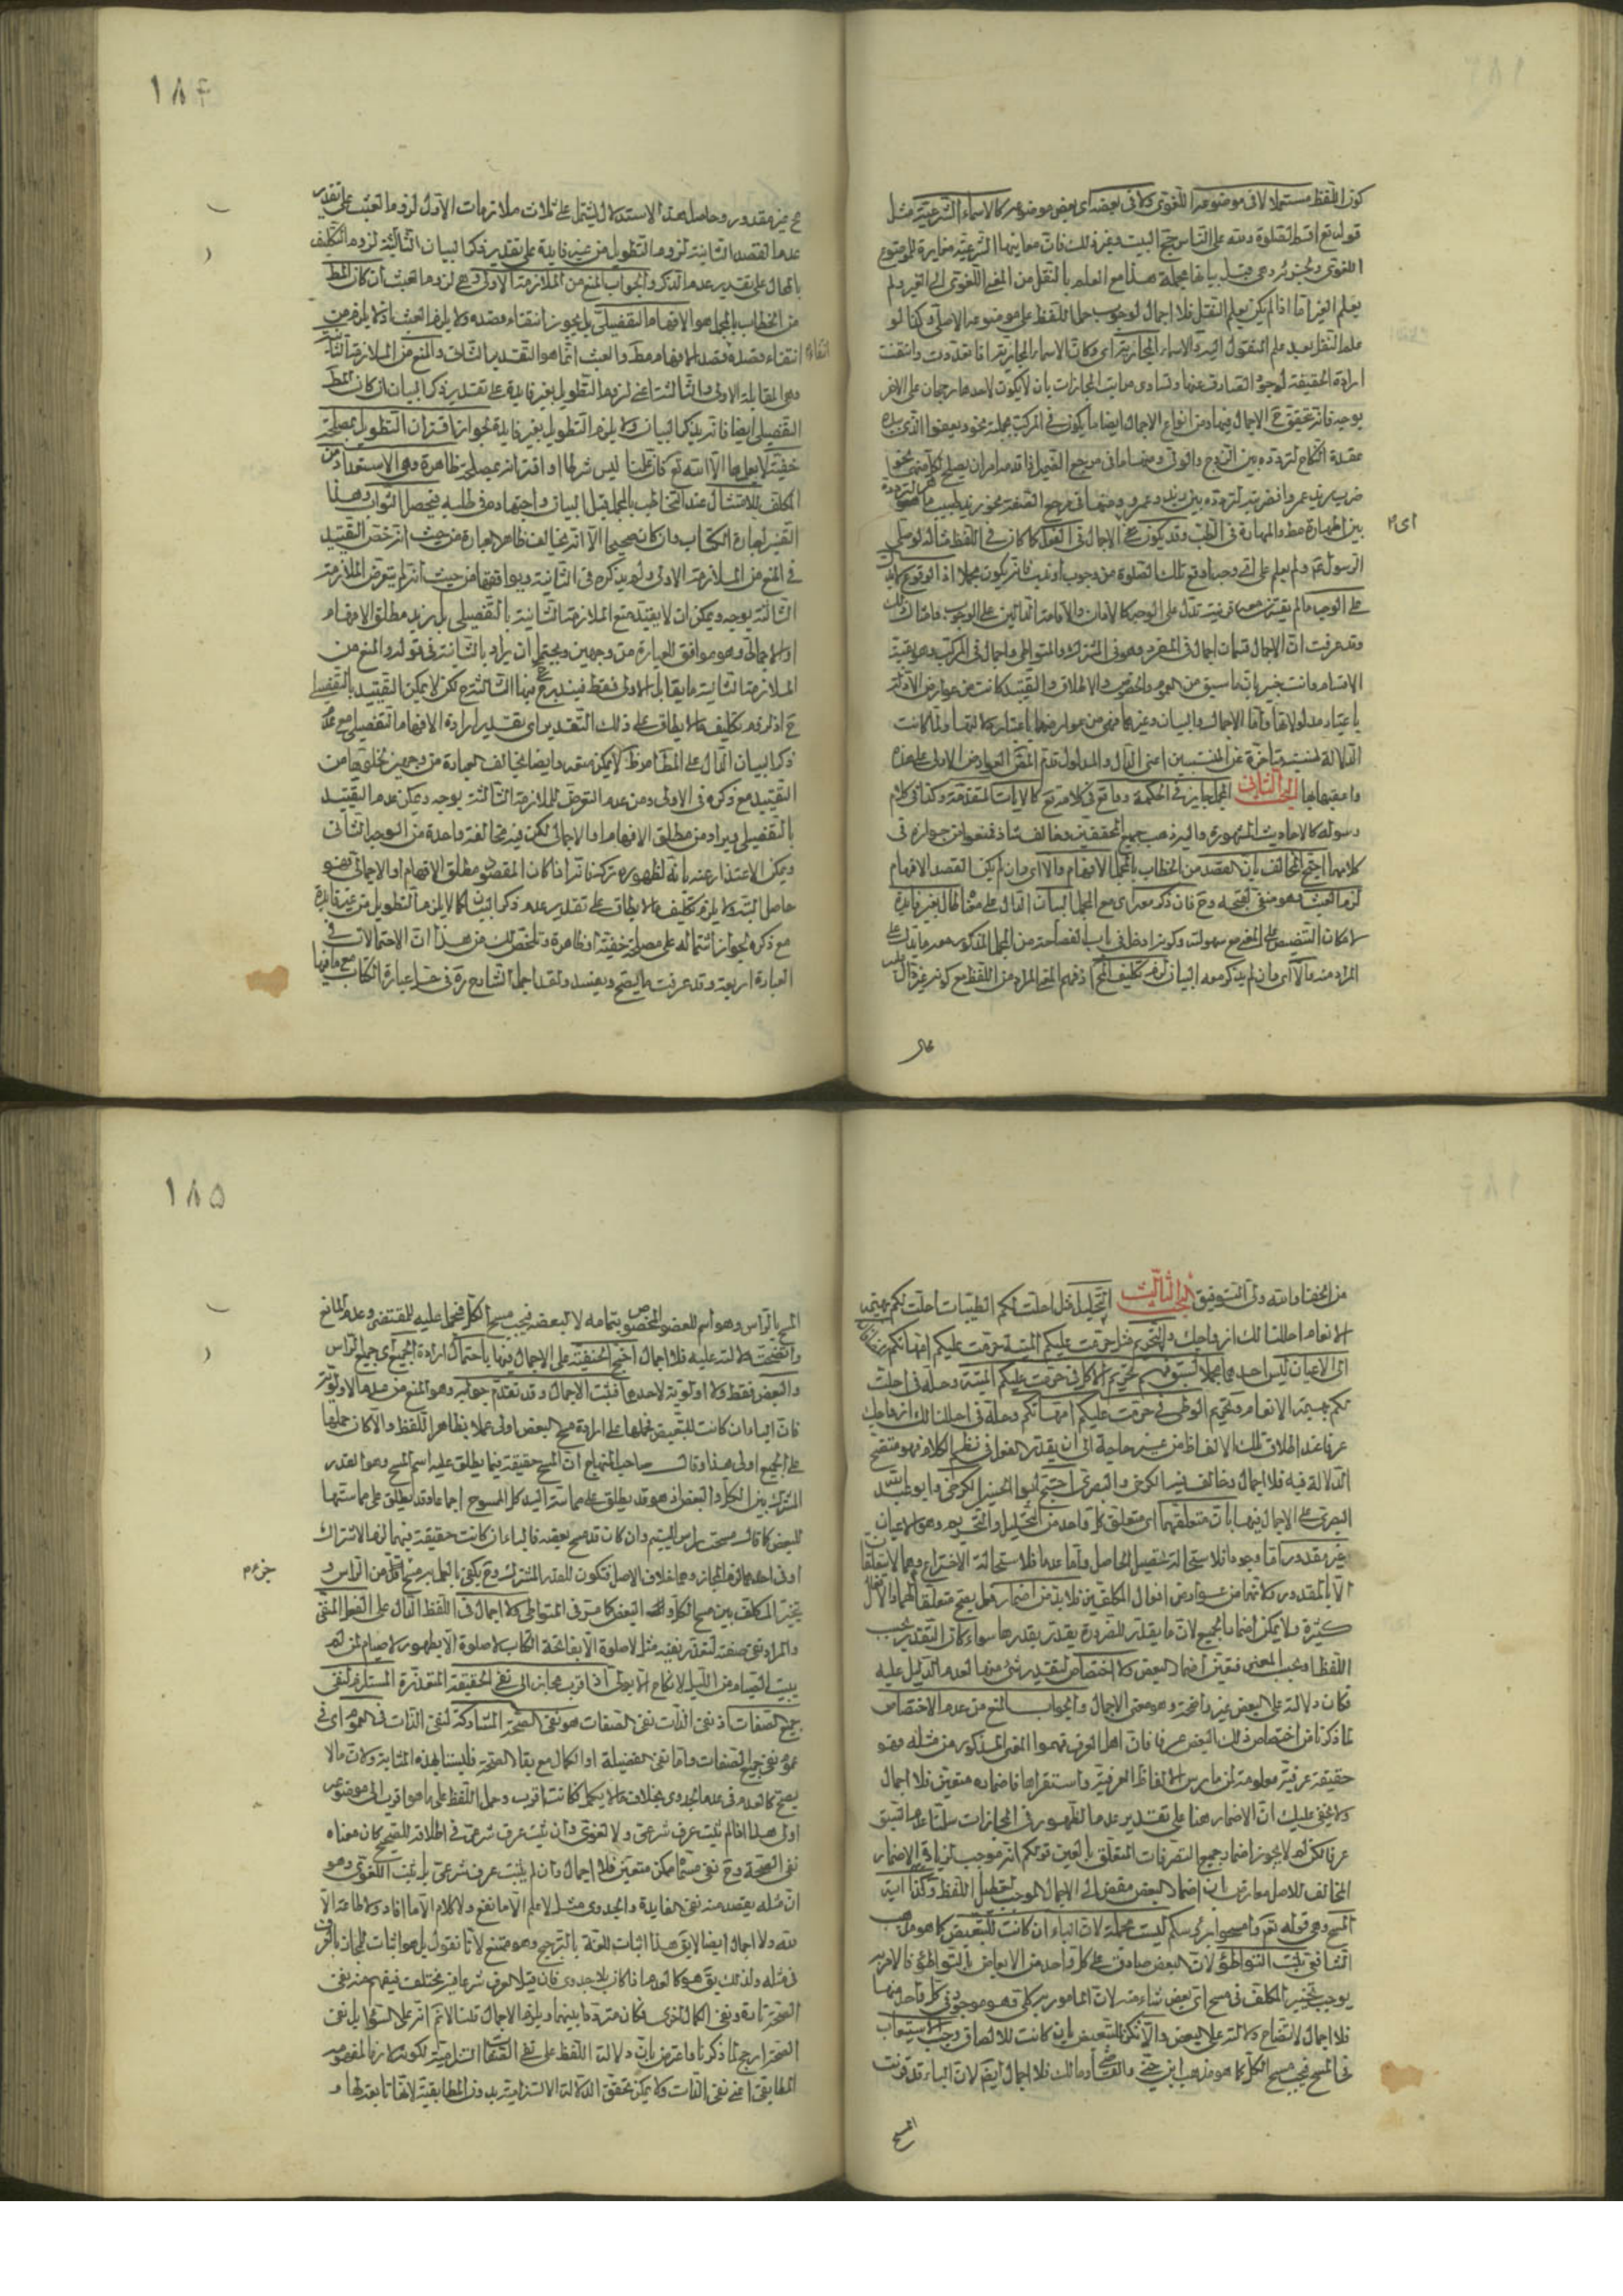 كون اللفظ مستعملا لا في موضوعه اللغوي ولا في بعضه اي بعض موضوعه كالاسماء الشرعية مثل
قوله تع اقيموا الصلوة ولله على الناس حج البيت وغير ذلك فان معانيها الشرعية مغايرة للموضوع
اللغوي وقبل بيانها مجملة هذا مع العلم بالنقل من المعنى اللغوي الى الغير ولم
يعلم الغير اما اذا لم يكن يعلم النقل فلا اجمال لوجوب حمل اللفظ على موضوعه الاصلي وكذا لو
علم النقل بعينه وعلم المنقول اليه والاسماء المجازية اي وكالاسماء المجازية اذا تعددت وانتفت
ارادة الحقيقة لوجود الصارف عنها وتساوى مراتب المجازات بان لا يكون لاحدها رجحان على الاخر
عقدة النكاح لتردده بين الزوج والولي ومنها ما في مرجع الضمير اذا تقدمه امران يصلح لكل منهما نحو
ضرب زيد عمروا فضربته لتردده بين زيد وعمرو ومنها في مرجع الصفة نحو زيد طبيب ماهر لتردده
بين المهارة مط والمهارة في الطب وقد يكون الاجمال في الفعل كما كان في اللفظ مثاله لو صلى
ای
الرسول ولم يعلم على اي وجه اوقع تلك الصلوة من وجوب او ندب فانه يكون مجملا اذ الوقوع
على الوجه ما لم يقترن معه قرينة تدل على الوجه كالاذان والاقامة الدالين على الوجوب
وقد عرفت ان الاجمال قسمان اجمال في المفرد وهو في المشترك والمتواطي واجمال في المركب وهو بقية
الاقسام وانت خبير بان ما سبق من العموم والخصوص والاطلاق والتقييد كانت من عوارض الادلة
باعتبار مدلولاتها واما الاجمال والبيان وغيرهما فهي من عوارضها باعتبار دلالتها ولما كانت
الدلالة نسبة متاخرة عن المنتسبين اعني الدال والمدلول قدم المص العوارض الاولى على هذه
البحث الثاني المجمل جايز في الحكمة وواقع في كلامه تع كالايات المتقدمة وكذا في كلام
رسوله كالاحاديث المشهورة واليه ذهب جميع المحققين وخالف شاذ فمنعوا من جوازه في
كلامهما احتج المخالف بان القصد من الخطاب بالمجمل الافهام والا اي وان لم يكن القصد الافهام
لزم العبث وهو منفي لقبحه وح فان ذكر معه اي مع المجمل البيان الدال على معناه طال بغير فايدة
لامكان التنصيص على المعنى مع سهولته وكونه ادخل في باب الفصاحة من المجمل المذكور معه ما يدل على
المراد منه والا اي وان لم يذكر معه البيان لزم تكليف المح اذ فهم المعنى المراد من اللفظ مع كونه غير دال عليه
محال
۱۸۴
ح غير مقدور وحاصل هذا الاستدلال يشتمل على ثلاث ملازمات الاول لزوم العبث على تقدير
عدم القصد الثانية لزوم التطويل من غير فايدة على تقدير ذكر البيان الثالثة لزوم التكليف
بالمحال على تقدير عدم الذكر والجواب المنع من الملازمة الاولى وهي لزوم العبث ان كان المط
من الخطاب بالمجمل هو الافهام التفصيلي بل يجوز انتفاء قصده ولا يلزم العبث اذ لا يلزم من
انتفاء قصده قصد الافهام مط والعبث انما هو التقدير الثاني والمنع من الملازمة الثانية
وهي المقابلة الاولى والثالثة اعني لزوم التطويل بغير فايدة على تقدير ذكر البيان ان كان المط
التفصيلي ايضا فانه يذكر البيان ولا يلزم التطويل بغير فايدة لجواز اقتران التطويل بمصلحة
خفية لا يعلمها الا الله تع فان علمنا ليس شرطا او اقترانه بمصلحة ظاهرة وهي الاستعداد من
المكلف للامتثال عند التخاطب بالمجمل قبل البيان واجتهاده في طلبه فيحصل الثواب وهذا
التفسير لعبارة الكتاب وان كان صحيحا الا انه يخالف ظاهر العبارة من حيث انه خص التقييد
في المنع من الملازمة الاولى ولم يذكره في الثانية ويوافقها من حيث انه لم يتعرض للملازمة
الثالثة بوجه ويمكن ان لا يقيد منع الملازمة الثانية بالتفصيلي بل يريد مطلق الافهام
او الاجمالي وهو موافق للعبارة من وجهين ويحتمل ان يراد بالثانية في قوله والمنع من
الملازمة الثانية ما يقابل الاولى فقط فيندرج فيها الثالثة لكن لا يمكن التقييد بالتفصيلي
ح اذ لزوم تكليف ما لا يطاق على ذلك التقدير اي بتقدير ارادة الافهام التفصيلي مع عدم
ذكر البيان الدال على المط لا يمكن منعه وايضا يخالف العبارة من وجهين
التقييد مع ذكره في الاولى ومن عدم التعرض للملازمة الثالثة بوجه ويمكن عدم التقييد
بالتفصيلي ويراد من مطلق الافهام او الاجمالي لكن فيه مخالفة واحدة من الوجه الثاني
ويمكن الاعتذار عنه بانه لظهوره تركه فانه اذا كان المقصود مطلق الافهام او الاجمالي فهو
حاصل البتة ولا يلزم تكليف ما لا يطاق على تقدير عدم ذكر البيان كما لا يلزم التطويل من غير فايدة
مع ذكره لجواز اشتماله على مصلحة خفية او ظاهرة وتلخص لك من هذا ان الاحتمالات في
العبارة اربعة وقد عرفت ما يصح ويفسد ولقد اجمل الشارح في حل عبارة الكتاب مع ما فيها
من الخفا والله ولي التوفيق البحث الثالث التحليل مثل احلت لكم الطيبات احلت لكم بهيمة
الانعام احللنا لك ازواجك والتحريم مثل حرمت عليكم الميتة حرمت عليكم امهاتكم
الى الاعيان ليس احدهما مجملا لسبق فهم تحريم الاكل في حرمت عليكم الميتة وحله في احلت
لكم بهيمة الانعام وتحريم الوطي في حرمت عليكم امهاتكم وحله في احللنا لك ازواجك
عرفا عند اطلاق تلك الالفاظ من غير حاجة الى ان يقدر الفعل في نظم الكلام فهو متضح
الدلالة فيه فلا اجمال وخالف فيه الكرخي والبصري احتج ابو الحسن الكرخي وابو عبد الله
البصري على الاجمال فيها بان متعلقهما اي متعلق كل واحد من التحليل والتحريم وهو الاعيان
غير مقدور اما وجودها فلاستحالة تحصيل الحاصل واما عدمها فلاستحالة الاختراع وهما لا يتعلقان
الا بالمقدور ولانهما من عوارض افعال المكلفين فلا بد من اضمار فعل يصح متعلقا لهما والافعال
كثيرة ولا يمكن اضمار الجميع لان ما يقدر للضرورة يقدر بقدرها سواء كان التقدير بحسب
اللفظ او بحسب المعنى فتعين اضمار البعض ولا اختصاص لتقدير شئ منها لعدم الدليل عليه
فكان دلالته على البعض غير واضحة وهو معنى الاجمال والجواب المنع من عدم الاختصاص
لما ذكرنا من اختصاص ذلك البعض عرفا فان اهل العرف فهموا المعنى المذكور من مثله فهو
حقيقة عرفية معلومة لمن مارس الالفاظ العرفية واستقراها فاضماره متعين فلا اجمال
ولا يخفى عليك ان الاضمار هنا على تقدير عدم الظهور في المجازات سلمنا عدم السبق
عرفا لكن لم لا يجوز اضمار جميع التصرفات المتعلق بالعين قولكم انه موجب لزيادة الاضمار
المخالف للاصل معارض بان اضمار البعض مفض الى الاجمال الموجب لتعطيل اللفظ وكذا اية
المسح وهي قوله تع وامسحوا برؤسكم ليست مجملة لان الباء ان كانت للتبعيض كما هو مذهب
الشافعي ثبت التواطؤ لان البعض صادق على كل واحد من الابعاض بالتواطؤ فالامر به
يوجب تخيير المكلف في مسح اي بعض شاء منه لان المامور به كلي فهو موجود في كل واحد منها
فلا اجمال لاتضاح دلالته على البعض والا اي وان لم يكن للتبعيض بان كانت للالصاق وجب الاستيعاب
في المسح فيجب مسح الكل كما هو مذهب ابن جني والقاضي ومالك فلا اجمال ايضا لان الباء قد قرنت
المسح
۱۸۵
المسح بالراس وهو اسم للعضو المخصوص بتمامه لا لبعضه فيجب مسح الكل حملا عليه للمقتضي وعدم المانع
واتضحت دلالته عليه فلا اجمال احتج الحنفية على الاجمال فيها باحتمال ارادة الجميع اي جميع الراس
والبعض فقط ولا اولوية لاحدهما فثبت الاجمال وقد تقدم جوابه وهو المنع من عدم الاولوية
فان الباء ان كانت للتبعيض فحملها على ارادة مسح البعض اولى عملا بظاهر اللفظ والا كان حملها
على الجميع اولى هذا وقال صاحب المنهاج ان المسح حقيقة فيما يطلق عليه اسم المسح وهو القدر
المشترك بين الكل والبعض اذ هو قد يطلق على مماسة اليد كل الممسوح اجماعا وقد يطلق على مماستها
للبعض كما قال مسحت براس اليتيم وان كان قد مسح بعضه فالباء ان كانت حقيقة فيهما لزم الاشتراك
او في احدهما لزم المجاز وهما خلاف الاصل فتكون للقدر المشترك وح يكفي بالعمل به مسح اقل من الراس و
يتخير المكلف بين مسح الكل والبعض كما مر في المتواطي ولا اجمال في اللفظ الدال على الفعل المنفي
والمراد نفي صفته لتعذر نفيه مثل لا صلوة الا بفاتحة الكتاب لا صلوة الا بطهور لا صيام لمن لم
يبيت الصيام من الليل لا نكاح الا بولي اذ اقرب مجاز الى نفي الحقيقة المتعذرة المستلزم لنفي
جميع الصفات اذ نفي الذات نفي الصفات هو نفي الصحة المشاركة لنفي الذات في العموم اي في
عموم نفي جميع الصفات واما نفي الفضيلة او الكمال مع بقاء الصحة فليسا بهذه المثابة ولان ما لا
يصح كالعدم في عدم الجدوى بخلاف ما لا يكمل فكانت اقرب وحمل اللفظ على ما هو اقرب الى موضوعه
اولى هذا اذا لم يثبت عرف شرعي ولا لغوي وان ثبت عرف شرعي في اطلاقه للصحيح كان معناه
نفي الصحة وح نفي مسماه ممكن متعين فلا اجمال وان لم يثبت عرف شرعي بل ثبت اللغوي وهو
ان مثله يقصد منه نفي الفايدة والجدوى مثل لا علم الا ما نفع ولا كلام الا ما افاد ولا طاعة الا
لله ولا اجمال ايضا لا يق هذا اثبات للغة بالترجيح وهو ممتنع لانا نقول بل هو اثبات المجاز بالعرف
في مثله ولذلك يق هو كالعدم اذا كان بلا جدوى فان قيل العرف شرعا فيه مختلف فيفهم منه نفي
الصحة تارة ونفي الكمال اخرى فكان مترددا بينهما ويلزم الاجمال قلنا لا نم انه على السواء بل نفي
الصحة ارجح لما ذكرنا واعترض بان دلالة اللفظ على نفي الصفات التزامية لكونها لازما لمفهومه
المطابقي اعني نفي الذات ولا يمكن تحقق الدلالة الالتزامية بدون المطابقية لانها تابعة لها و